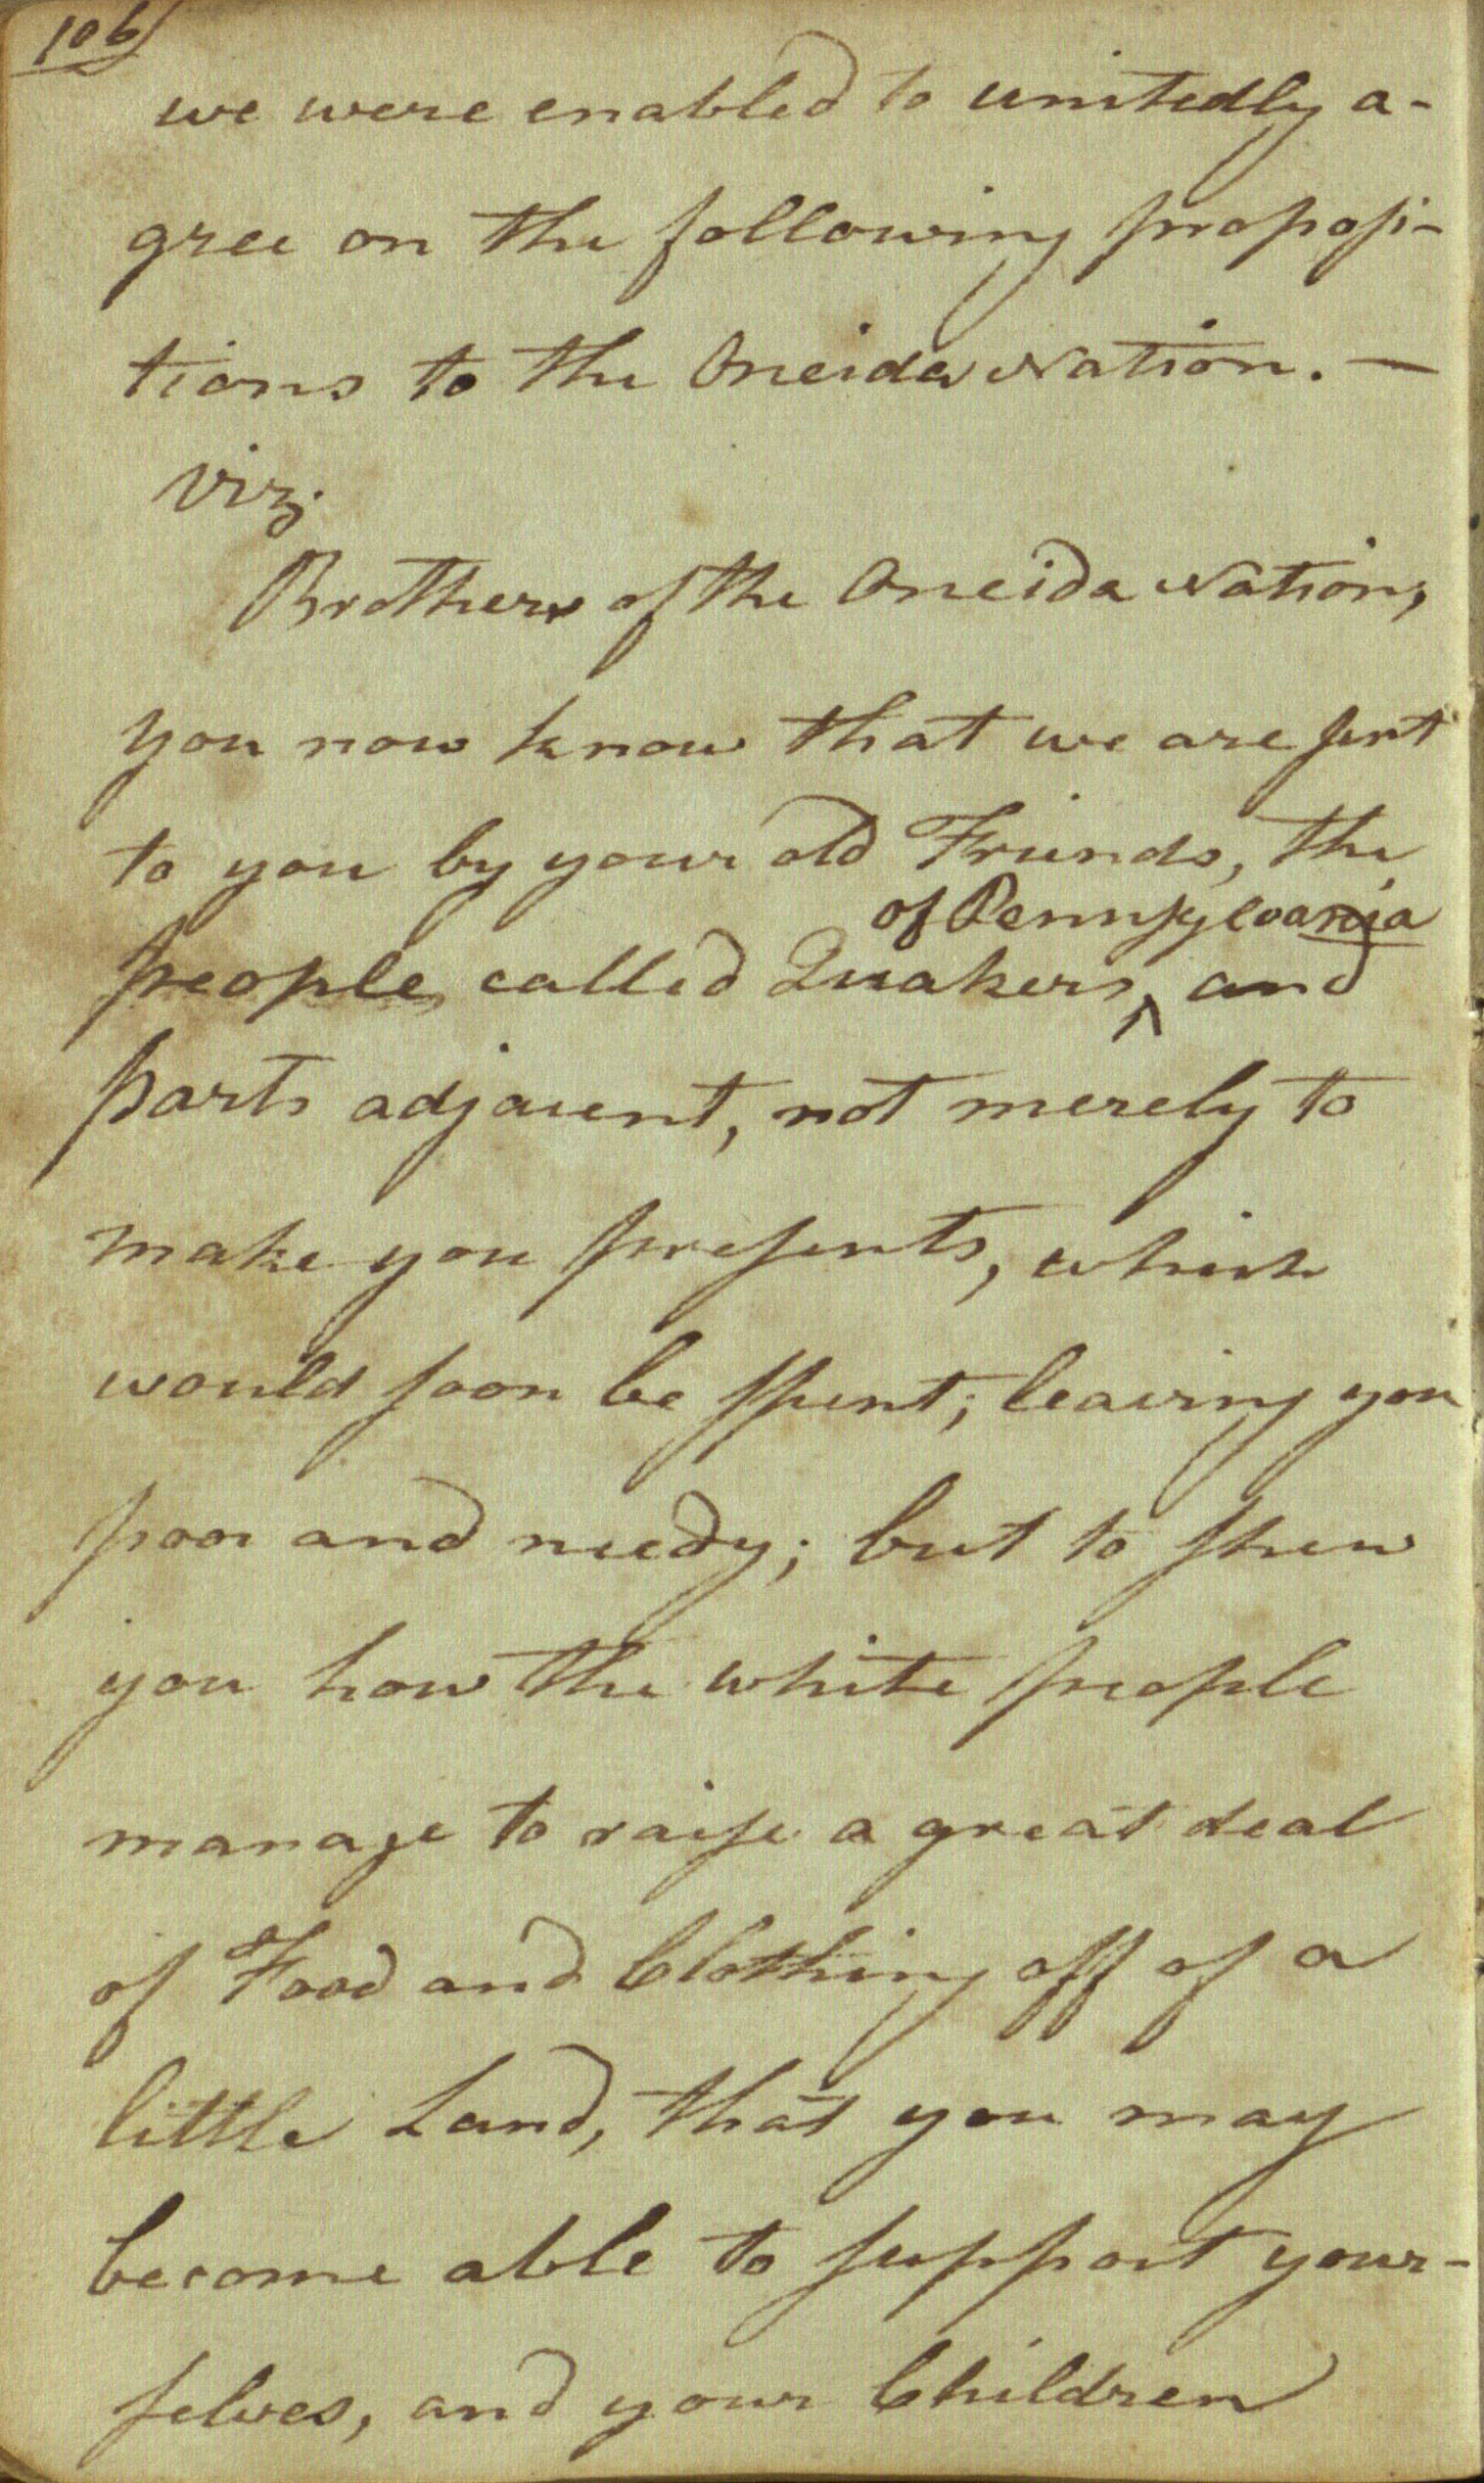 106
we were enabled to unitedly a-
gree on the following proposi-
tions to the Oneida Nation. —
Viz.
Brothers of the Oneida Nation,
you now know that we are sent
to you by your old Friends, the
of Pennsylvania
people called Quakers, ^ and
parts adjacent, not merely to
make you presents, which
would soon be spent; leaving you
poor and needy; but to shew
you how the white people
manage to raise a great deal
of Food and Clothing off of a
little Land, that you may
become able to support your-
selves, and your Children